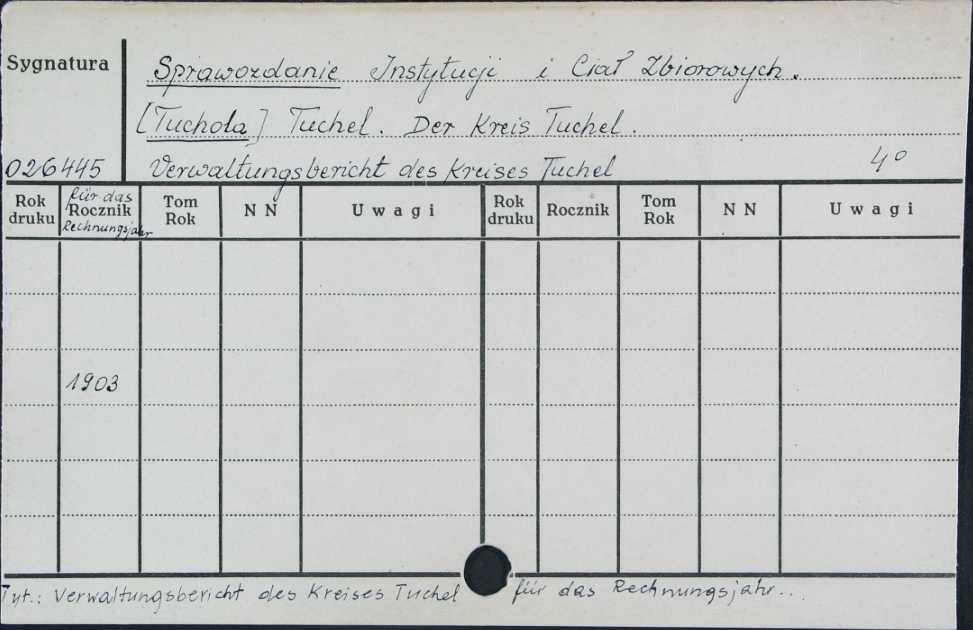 Sygnatura
Sprawozdanie Instytucji i Ciał Zbiorowych.
[Tuchola] Tuchel. Der Kreis Tuchel.
026445 Verwaltungsbericht des Kreises Tuchel 4°
Rok druku für das Rocznik Rechnungsjahr Tom Rok NN Uwagi Rok druku Rocznik Tom Rok NN Uwagi
1903
Tyt.: Verwaltungsbericht des Kreises Tuchel für das Rechnungsjahr...